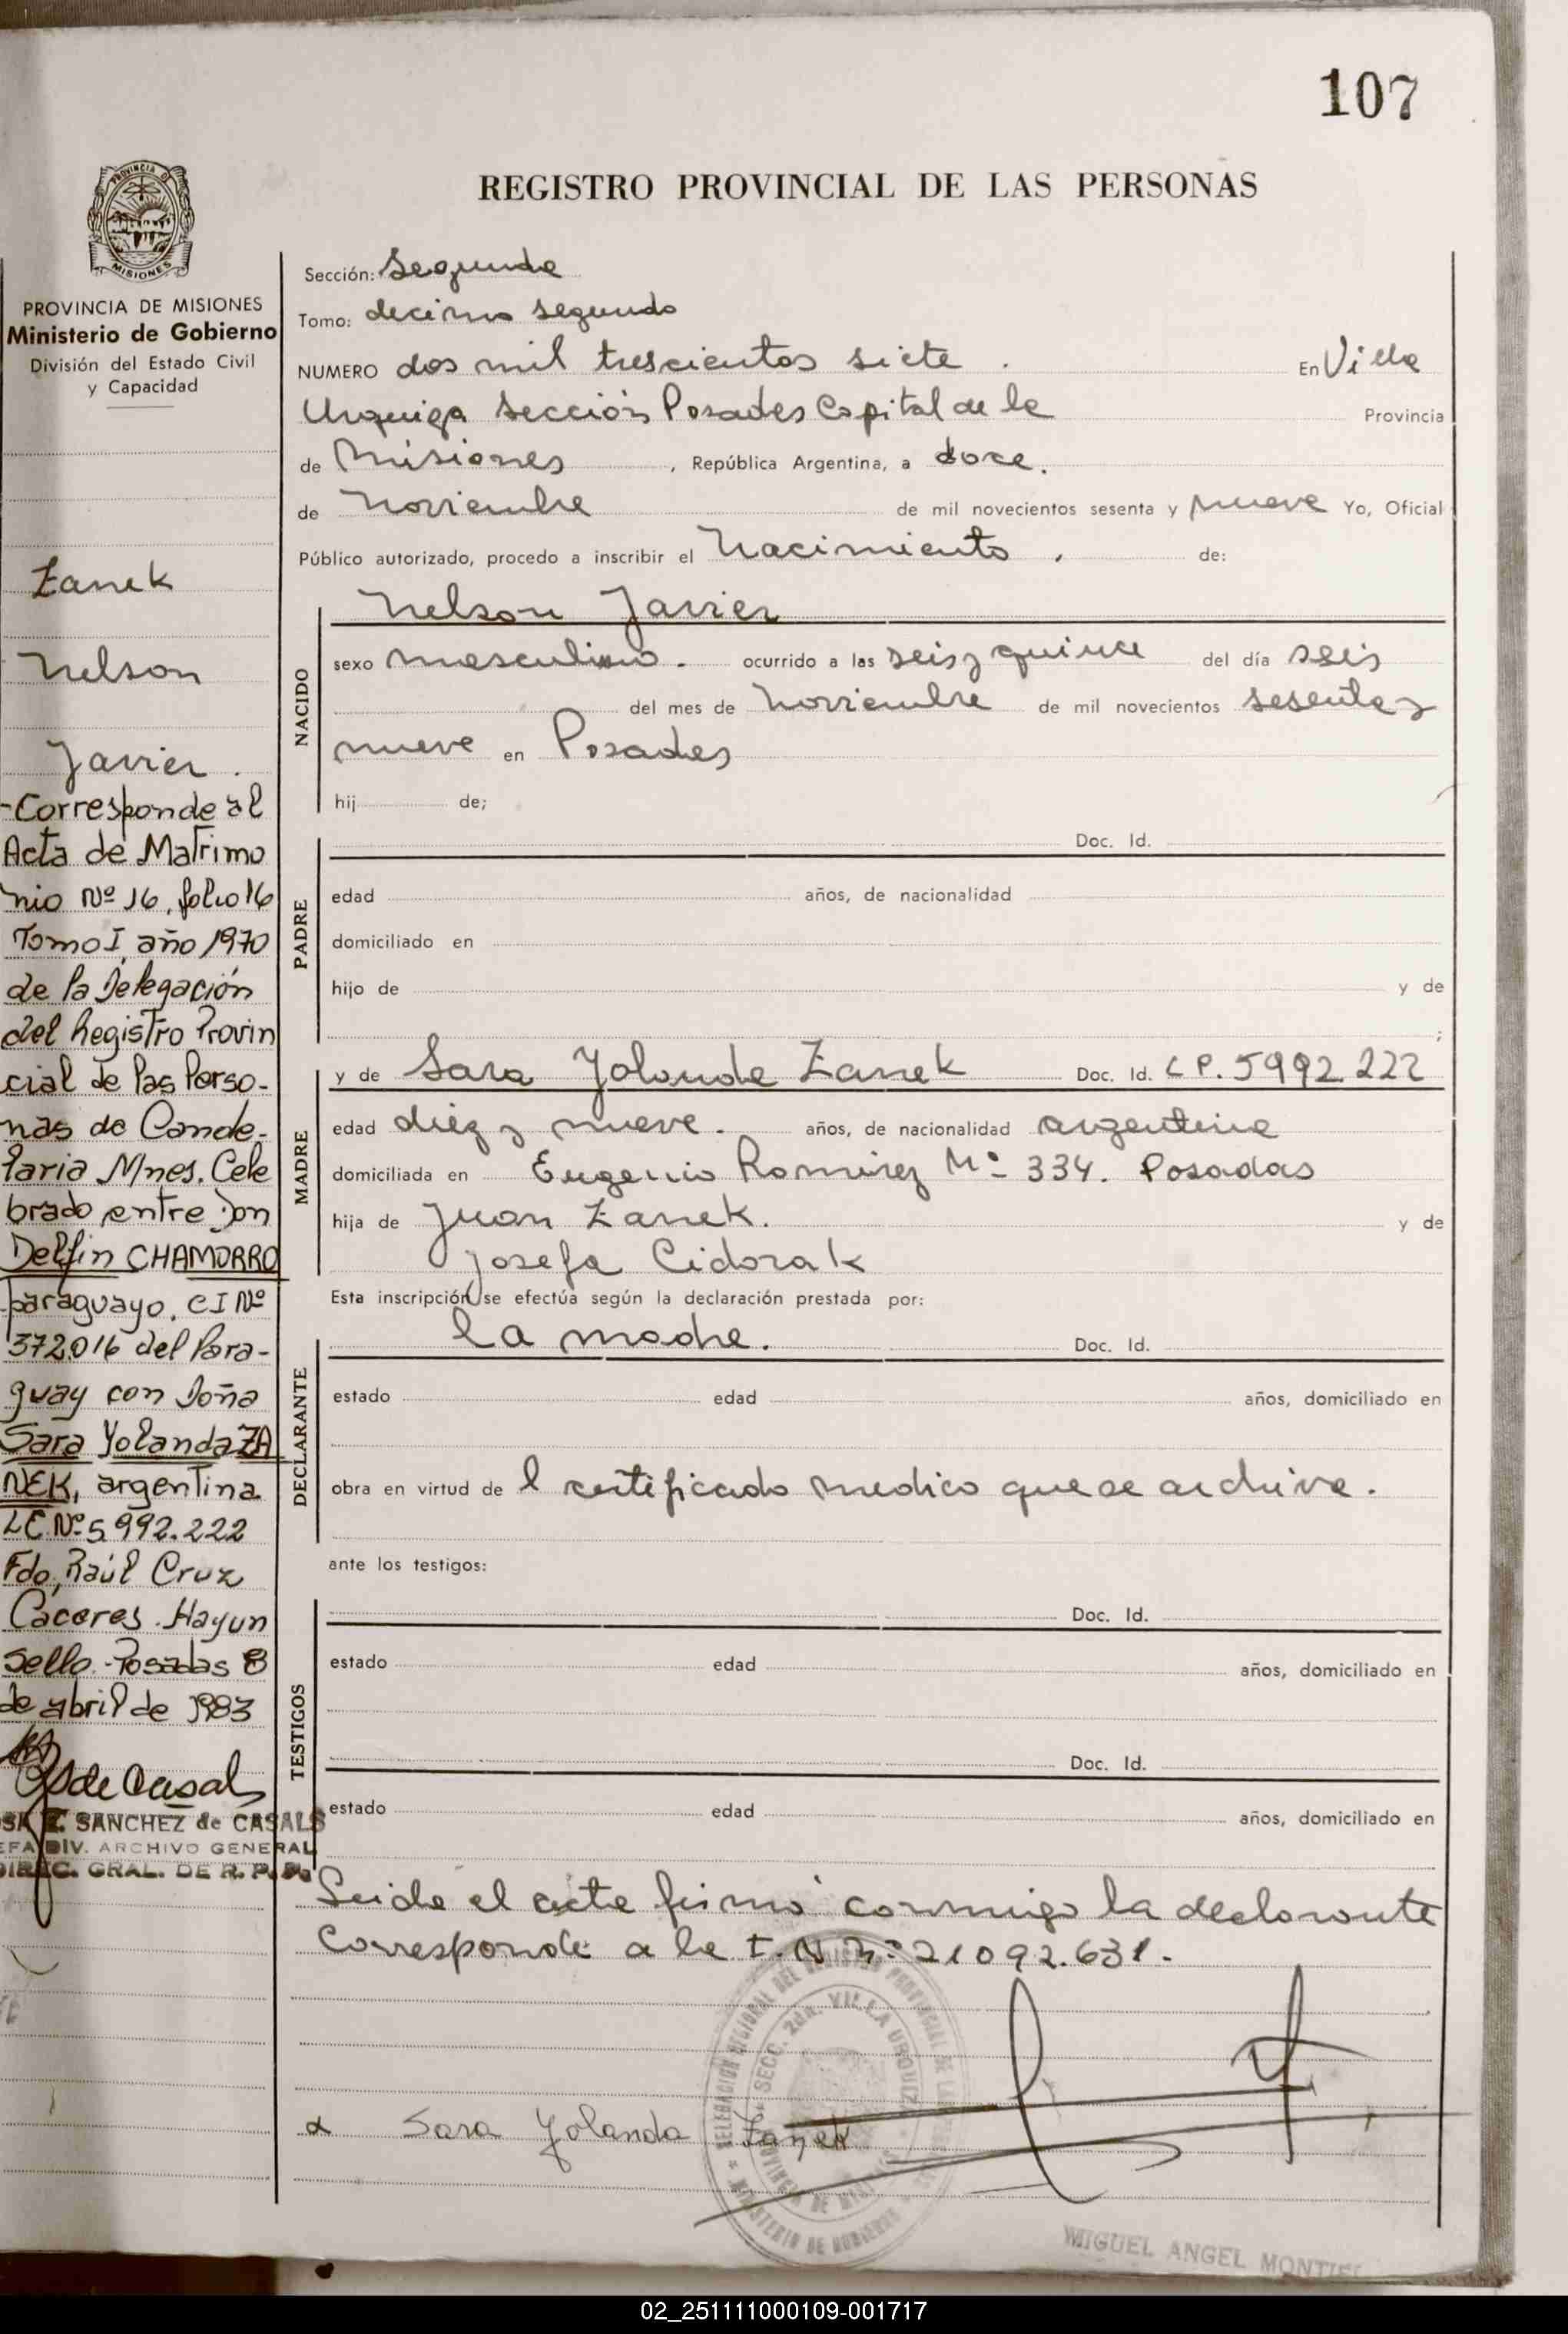 107
REGISTRO PROVINCIAL DE LAS PERSONAS
PROVINCIA DE
MISIONES
PROVINCIA DE MISIONES
Ministerio de Gobierno
División del Estado Civil
y Capacidad
Zanek
Nelson
Javier.
-Corresponde al
Acta de Matrimo
nio Nº 16, folio 16
Tomo I, año 1970
de la Delegación
del Registro Provin
cial de las Perso-
nas de Cande-
laria Mnes. Cele
brado entre Don
Delfin CHAMORRO
paraguayo. CI Nº
372016 del Para-
guay con Doña
Sara Yolanda ZA
NEK, argentina
LC Nº 5.992.222
Fdo, Raúl Cruz
Cáceres. Hayun
sello.-Posadas 8
de abril de 1983
SdeCasals
SANCHEZ de CASALS
DIV. ARCHIVO GENERAL
GRAL. DE R. P. P.
Sección: Segunda
Tomo: decimo segundo
NUMERO dos mil trescientos siete. En Villa
Urquiza Sección Posadas Capital de la Provincia
de Misiones, República Argentina, a doce.
de Noviembre de mil novecientos sesenta y nueve Yo, Oficial
Público autorizado, procedo a inscribir el Nacimiento. de:
NACIDO
Nelson Javier
sexo masculino. ocurrido a las seis y quince del día seis
del mes de Noviembre de mil novecientos sesenta y
nueve en Posadas
hij de;
PADRE
Doc. Id.
edad años, de nacionalidad
domiciliado en
hijo de y de
;
MADRE
y de Sara Yolanda Zanek Doc. Id. LP. 5992.222
edad diez y nueve. años, de nacionalidad argentina
domiciliada en Eugenio Ramirez Nº 334. Posadas
hija de Juan Zanek. y de
Josefa Cidorak
Esta inscripción se efectúa según la declaración prestada por:
DECLARANTE
la madre. Doc. Id.
estado edad años, domiciliado en
obra en virtud de l certificado medico que se archiva.
ante los testigos:
TESTIGOS
Doc. Id.
estado edad años, domiciliado en
Doc. Id.
estado edad años, domiciliado en
Leida el acta firmó conmigo la declarante
Corresponde a la I. N Nº 21092.631.
DELEGACION REGIONAL DEL REGISTRO PROVINCIAL DE LAS
SECC. 2da. VILLA URQUIZA
PROVINCIA DE MISIONES
MINISTERIO DE GOBIERNO
Sara Yolanda Zanek
MIGUEL ANGEL MONTIEL
02_251111000109-001717